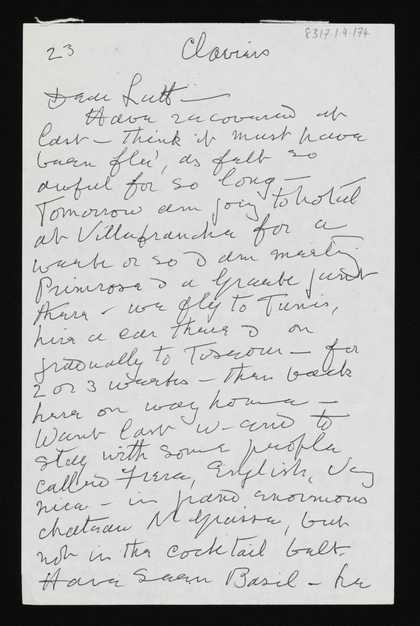 8317.1.9.174
23
Claviers
Dear Lett —
Have recovered at
last — think it must have
been flu', as felt so
awful for so long —
Tomorrow am going to hotel
at Villefranche for a
week or so & am meeting
Primrose & a Greek
there — we fly to Tunis,
hire a car there & on
gradually to Tozeur — for
2 or 3 weeks — then back
here on way home —
Went last w-end to
stay with some people
called Frere, English, very
nice — in grand enormous
chateau N. Grasse, but
not in the cocktail belt.
Have seen Basil — he